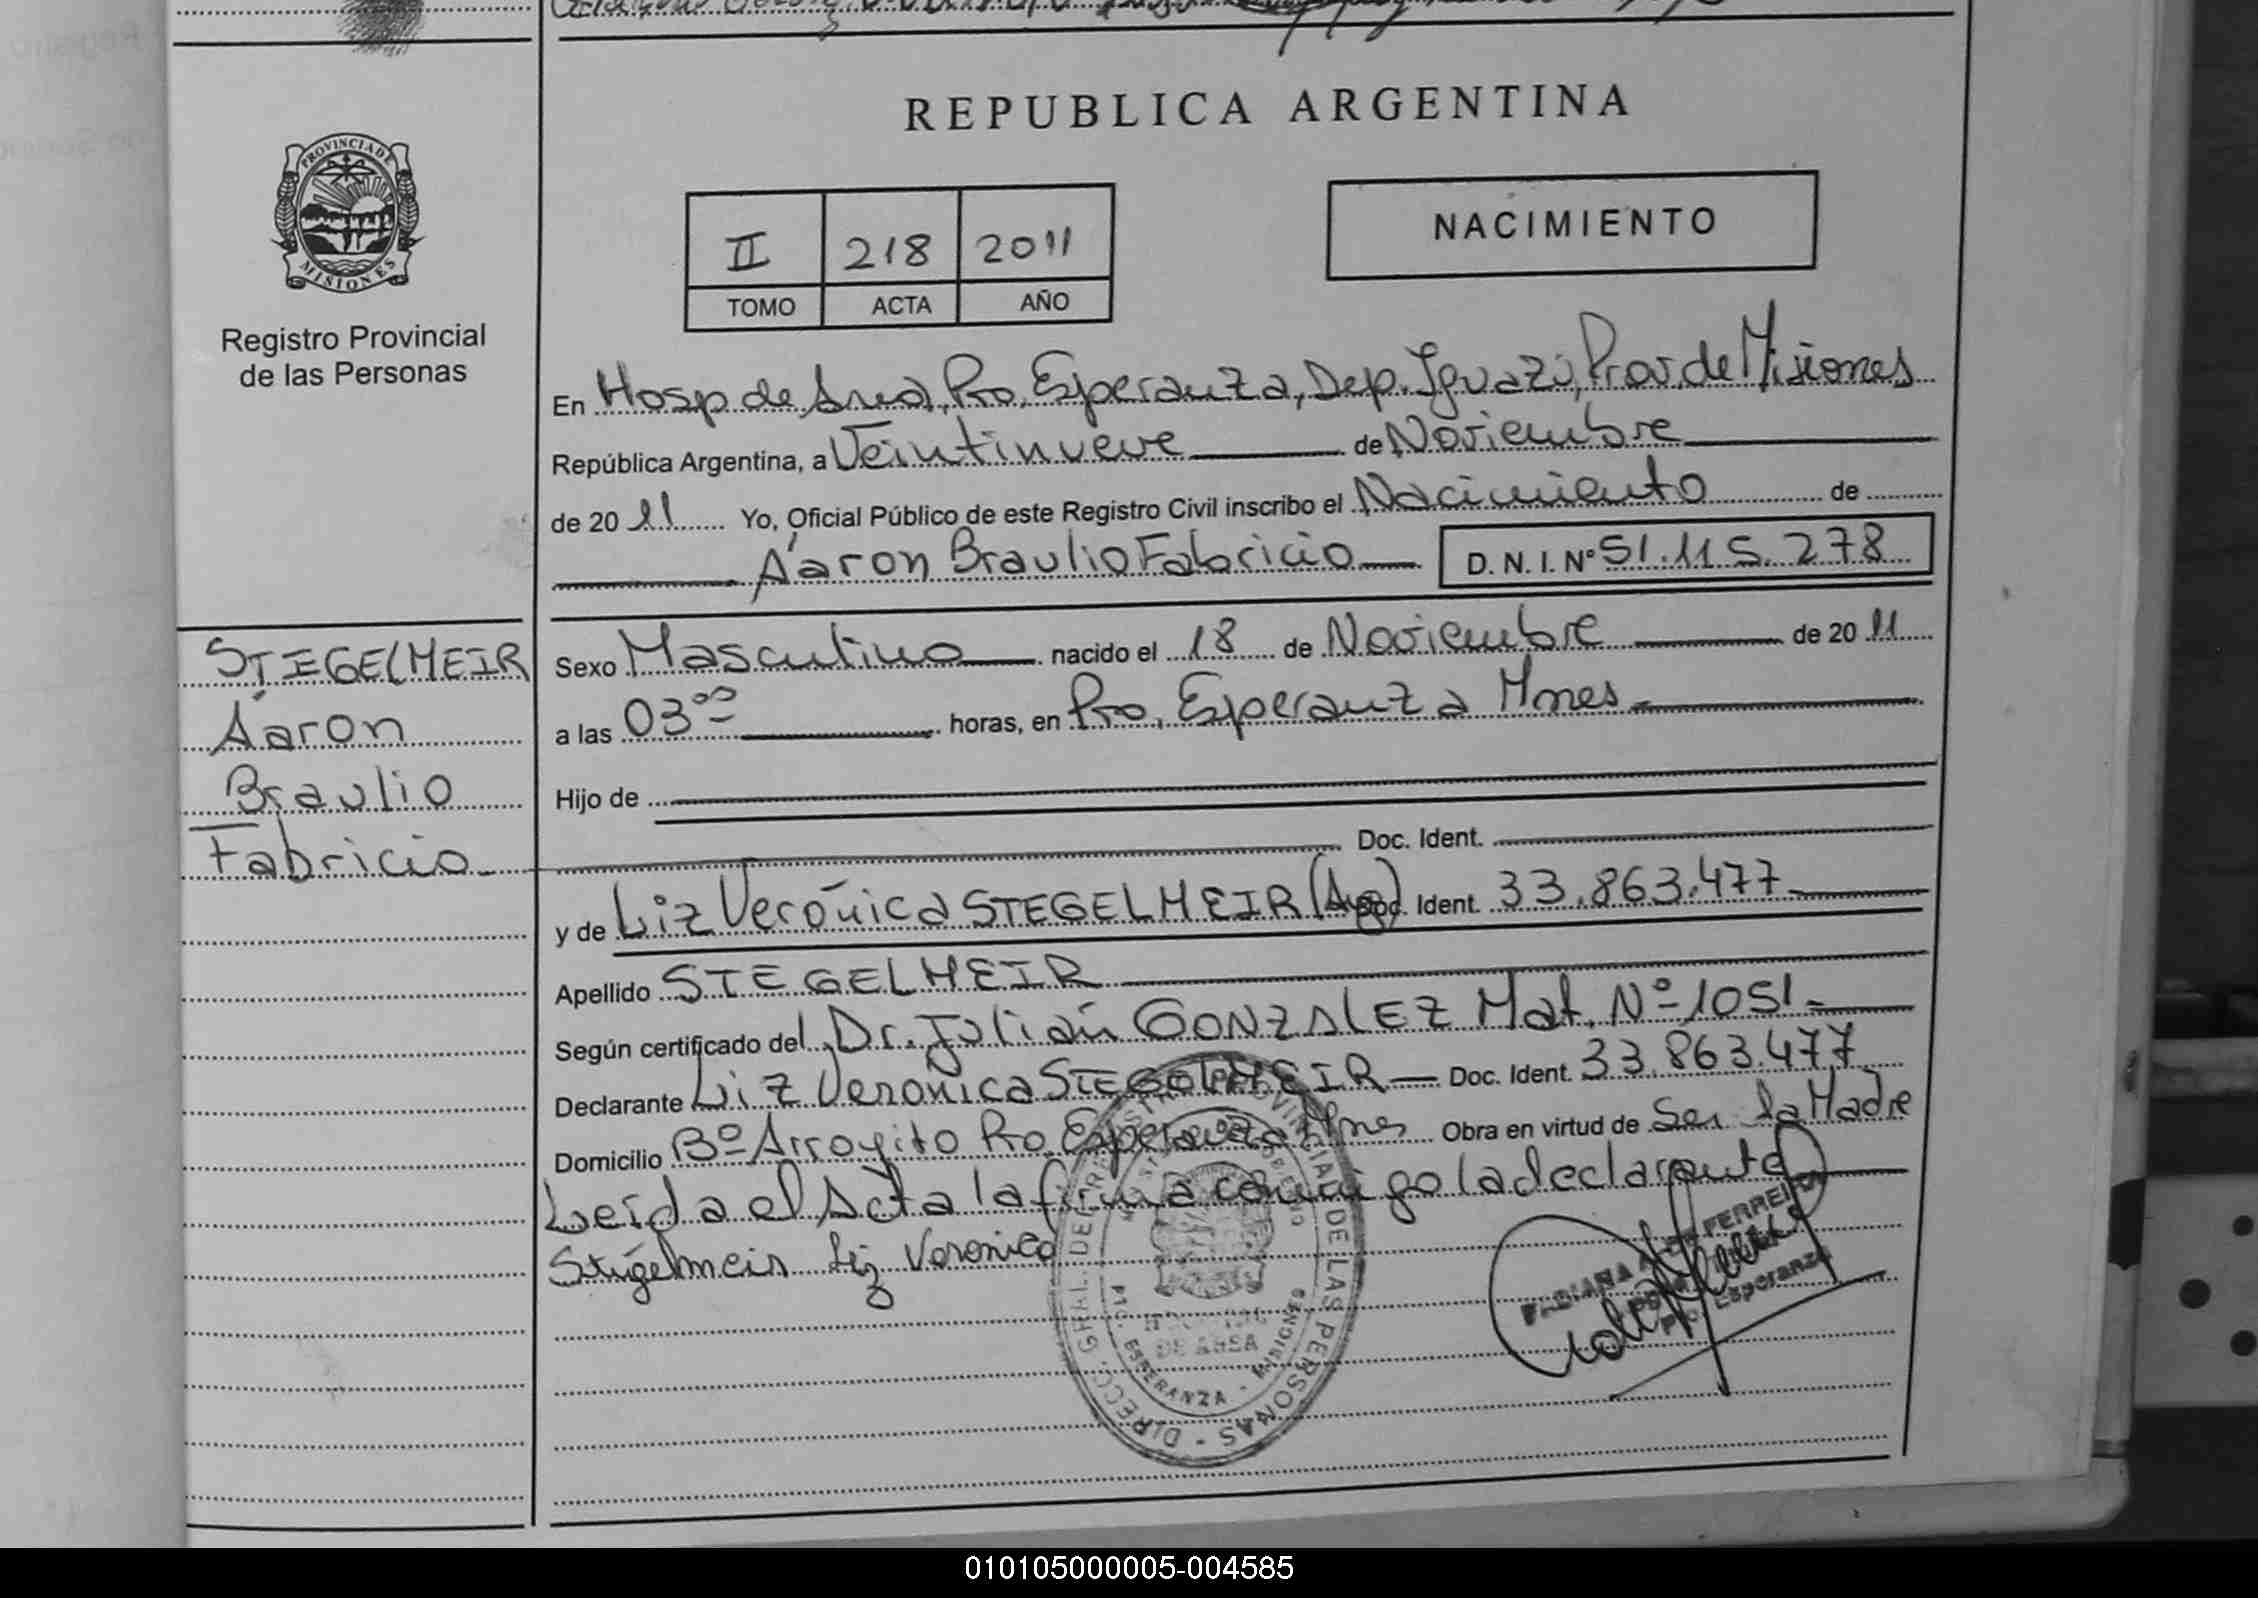 REPUBLICA ARGENTINA
PROVINCIA DE MISIONES
Registro Provincial
de las Personas
II 218 2011
TOMO ACTA AÑO
NACIMIENTO
En Hosp de Area, Pto. Esperanza, Dep. Iguazú, Prov. de Misiones
República Argentina, a Veintinueve de Noviembre
de 2011 Yo, Oficial Público de este Registro Civil inscribo el Nacimiento de
Áaron Braulio Fabricio D. N. I. Nº 51.115.278
STIEGELMEIR
Áaron
Braulio
Fabricio
Sexo Masculino nacido el 18 de Noviembre de 2011
a las 03 00 horas, en Pto. Esperanza Mnes
Hijo de
Doc. Ident.
y de Liz Verónica STEGELMEIR (Arg) Doc. Ident. 33.863.477
Apellido STEGELMEIR
Según certificado del Dr. Julián GONZALEZ Mat. Nº 1051
Declarante Liz Verónica STEGELMEIR Doc. Ident. 33.863.477
Domicilio Bº Arroyito Pto. Esperanza Mnes Obra en virtud de Ser la Madre
Leída el Acta la firma conmigo la declarante
Stegelmeir Liz Veronica
DIRECC. GRAL. DE PROVINCIAL DE LAS PERSONAS
DE AREA
ESPERANZA - MISIONES
FABIANA FERREIRA
Pto. Esperanza
010105000005-004585